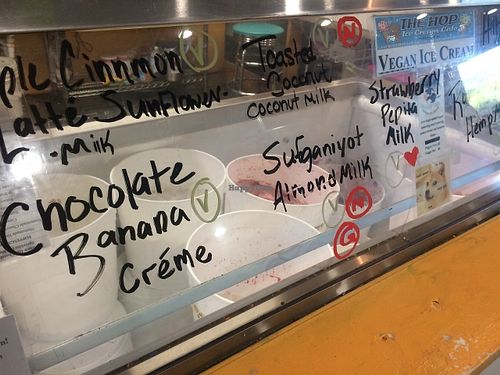 Cinnmon
Latté Sunflower-
-Milk
V
Toasted
Coconut
Coconut Milk
N
THE HOP
Ice Cream Cafe
VEGAN ICE CREAM
Strawberry
Pepita
Milk
V
Chocolate
Banana
Créme
V
Sufganiyot
Almond Milk
V
N
G
Hemp